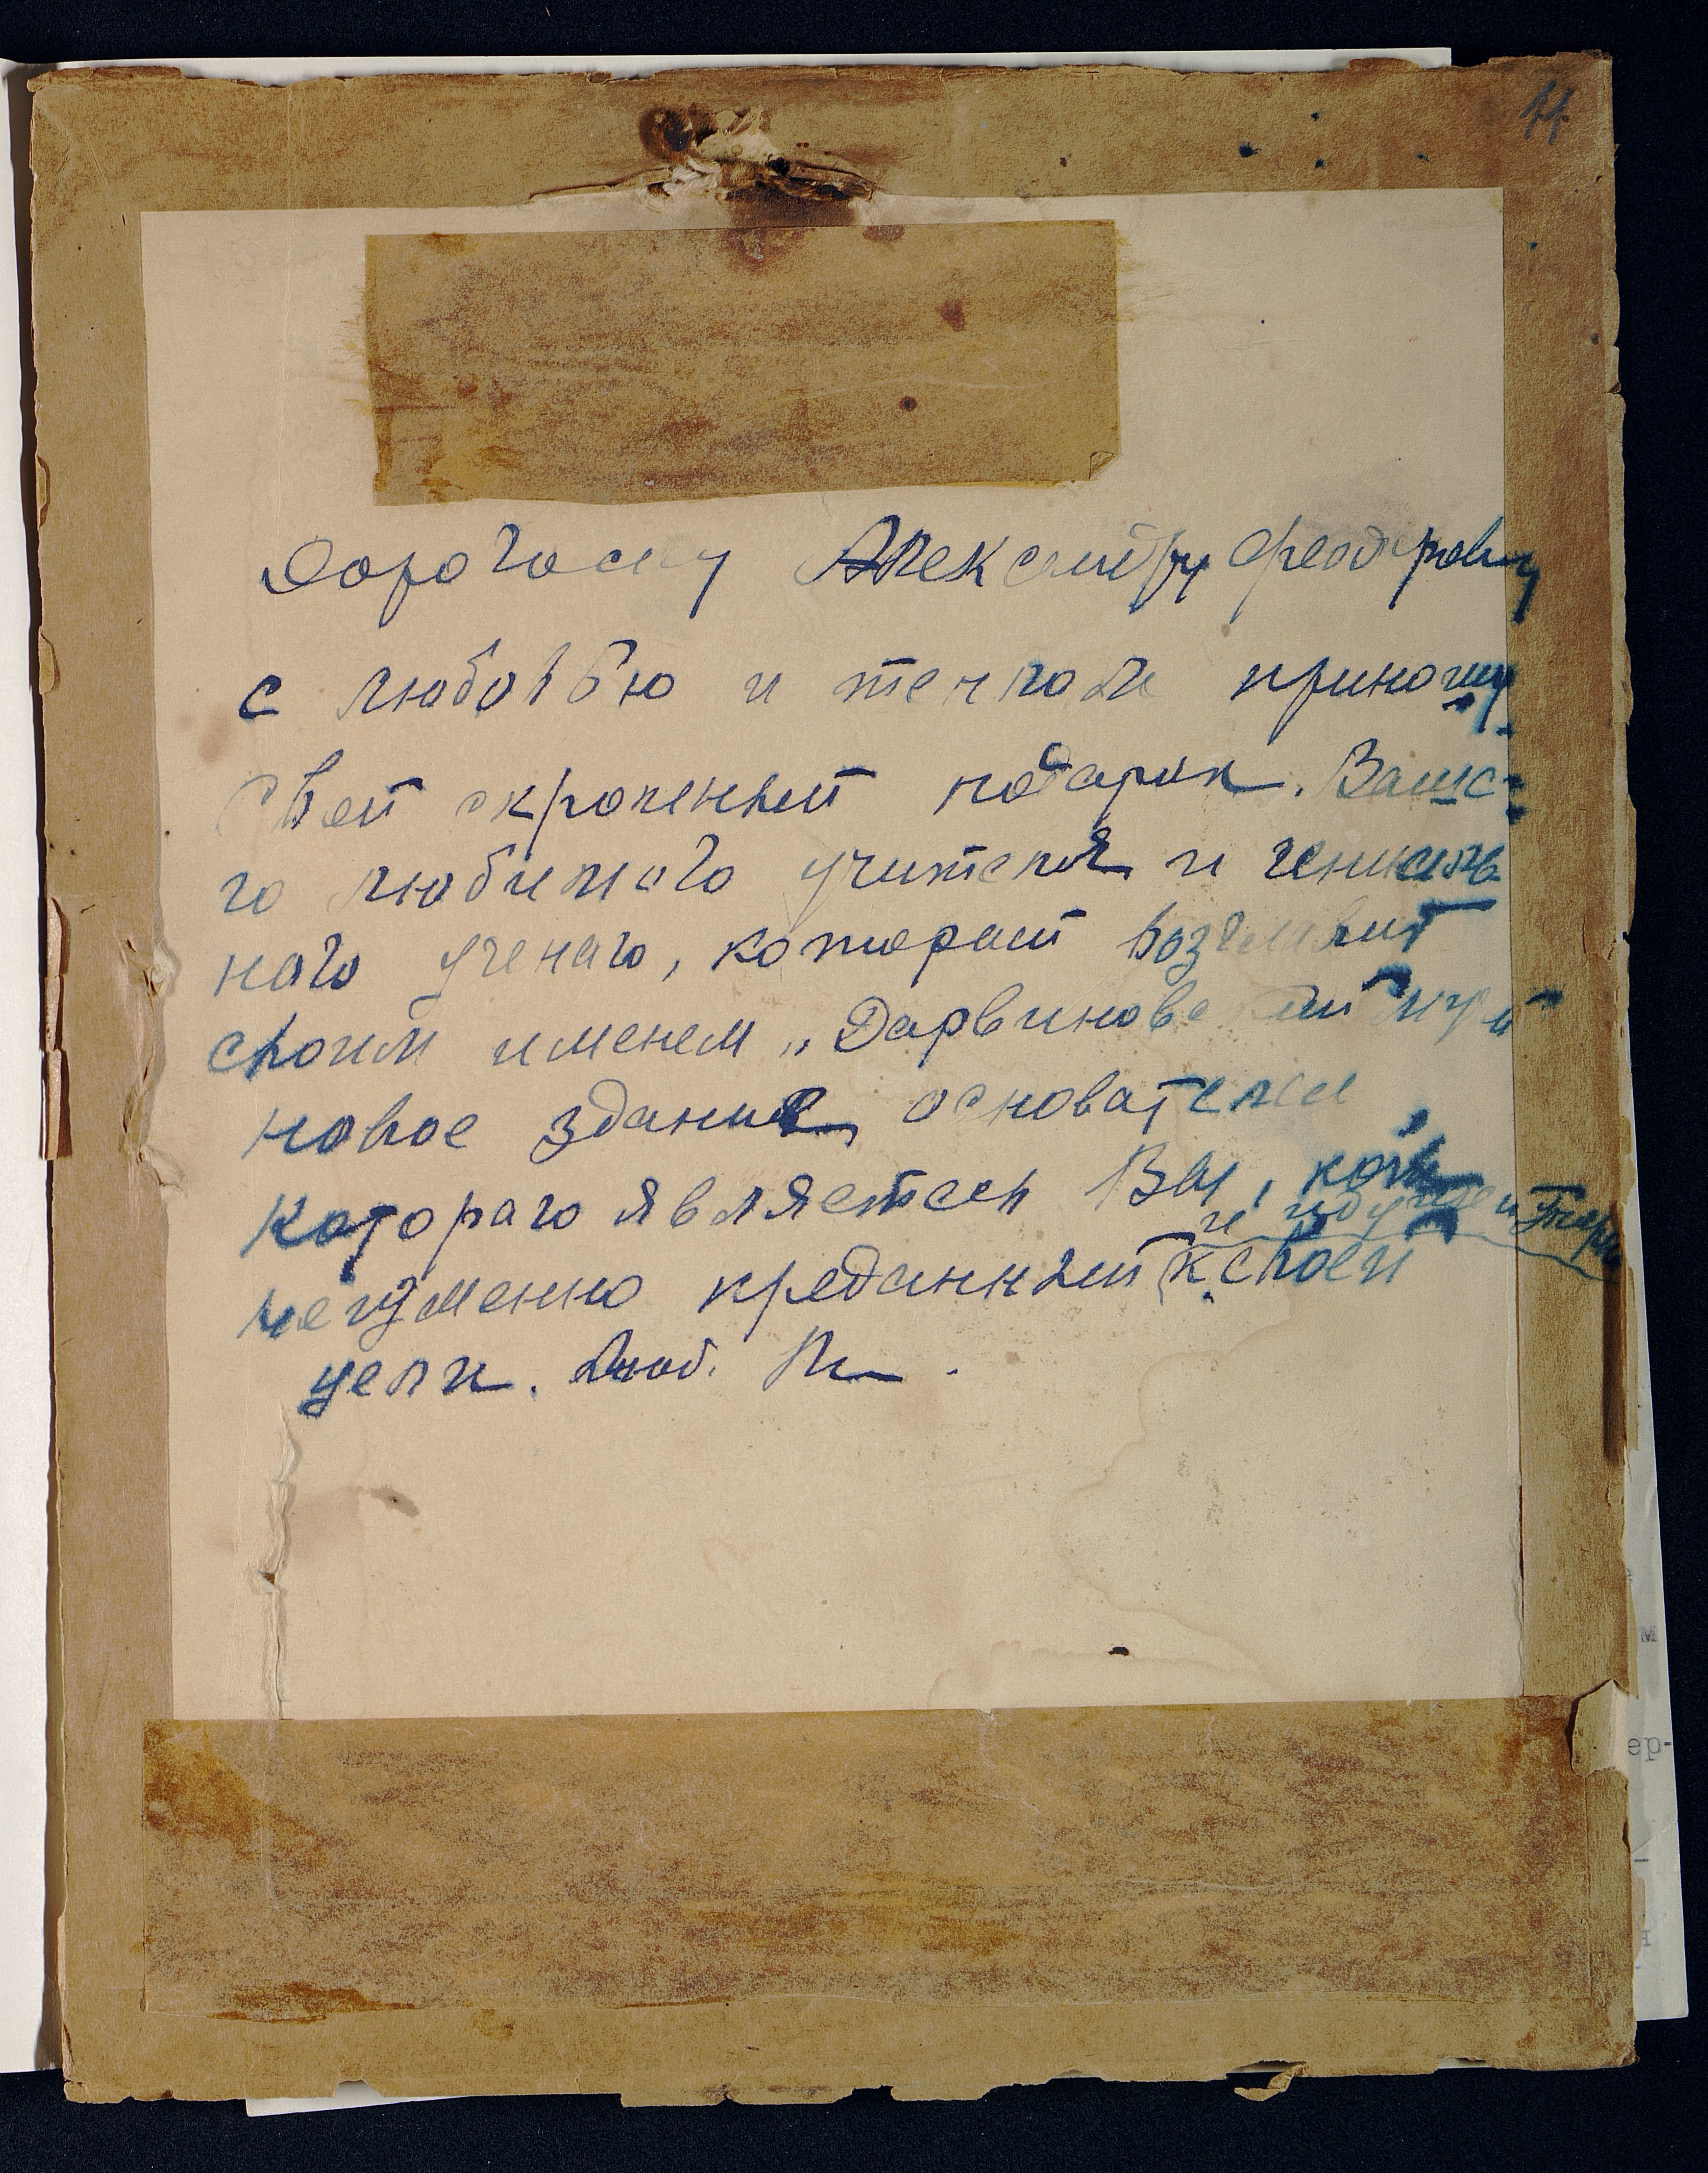 44
Дорогому Александру Феодоровичу
с любовью и теплом приношу
свой скромный подарок. Ваше=
го любимого учителя и гениаль
наго ученаго, который возглавит
своим именем „Дарвиновский муз"
новое здание, основателем
котораго является Вы, как
неизменно преданный и идущий
к своей
цели. Люб.
м
ер-